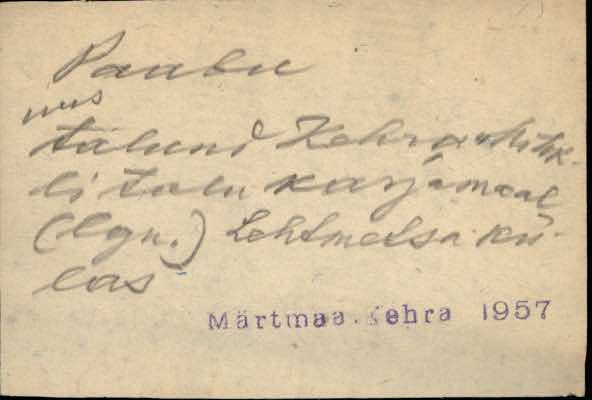 Paubu
uus
talund Kehra Mihk-
li talu karjamaal
(lgn.) Lehtmetsa kü-
las
Märtmaa. Kehra 1957